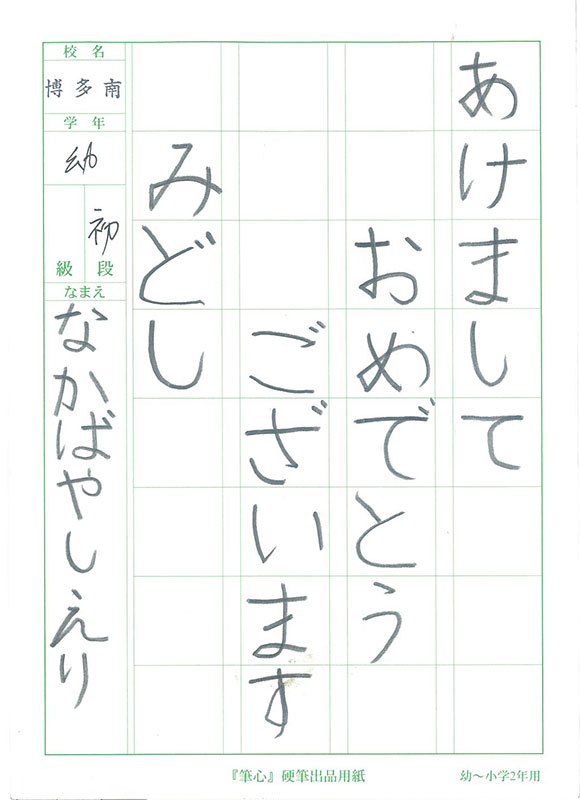 あけまして
おめでとう
ございます
みどし
校名
博多南
学年
幼
初
級段
なまえ
なかばやしえり
『筆心』硬筆出品用紙
幼～小学2年用